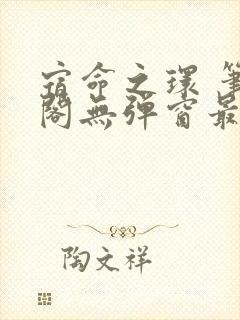 宿命之環 筆
閣無彈窗最
陶文祥